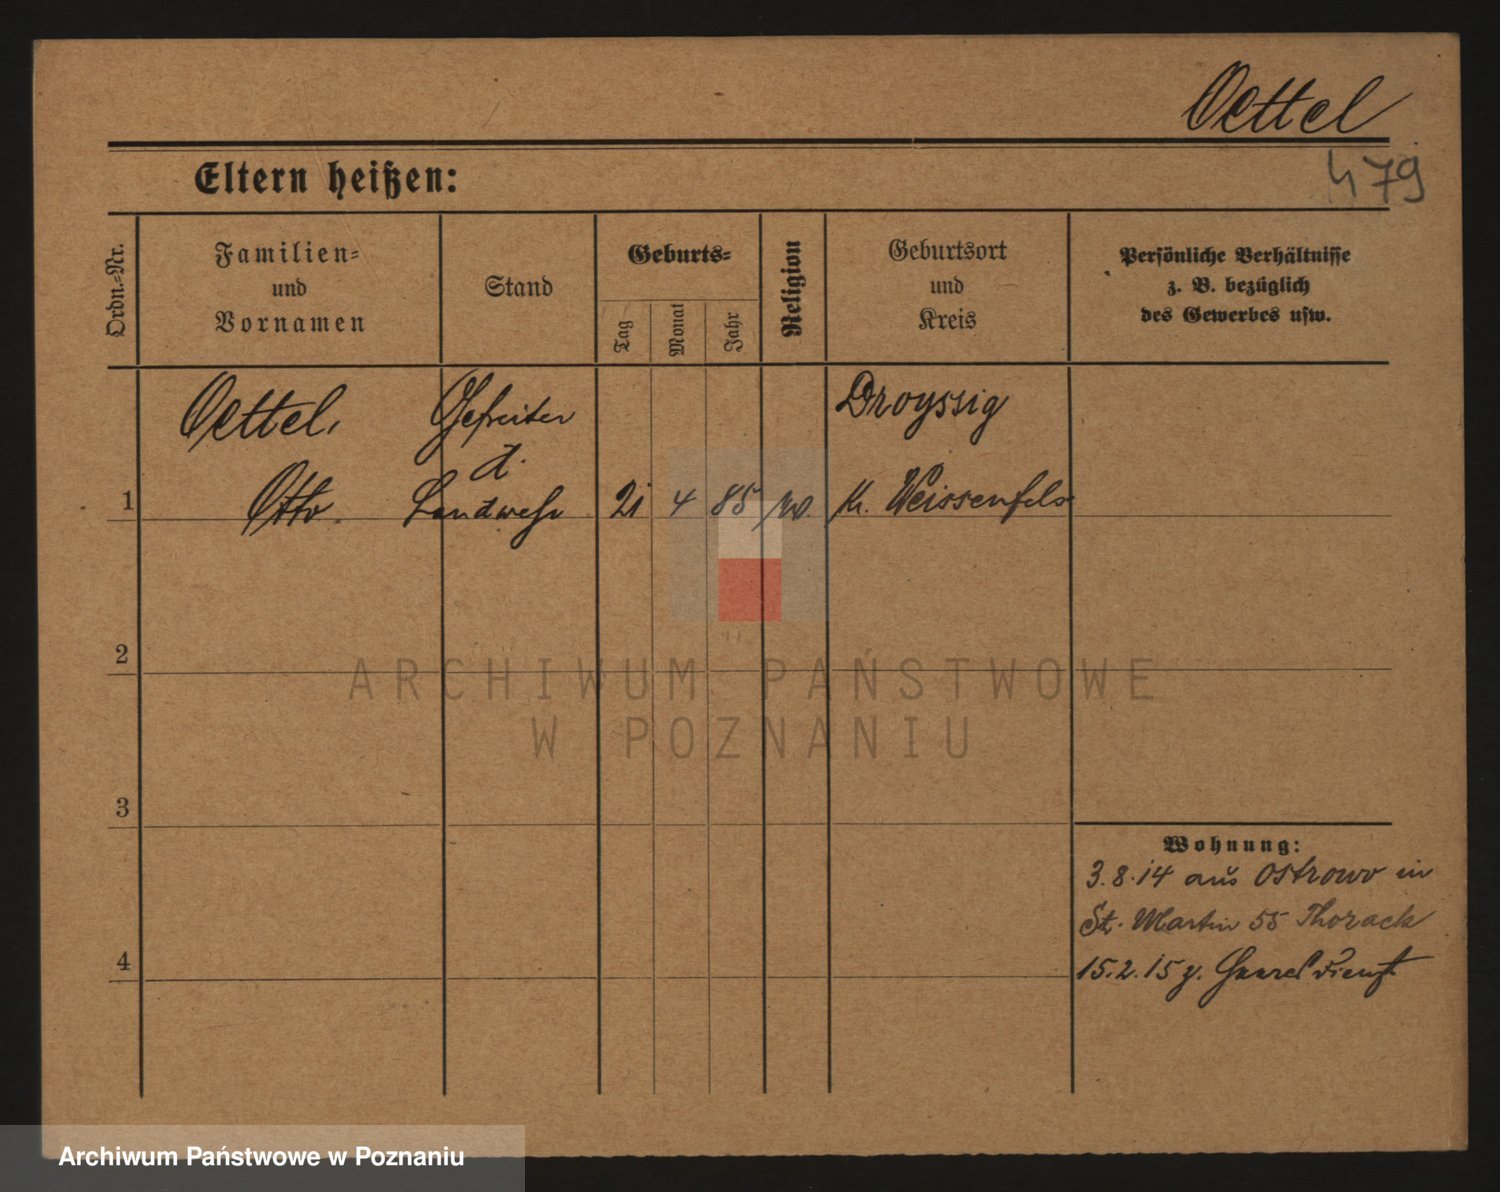 Oettel
479
Eltern heißen:
Ordn.-Nr.
Familien-
und
Vornamen
Stand
Geburts-
Tag
Monat
Jahr
Religion
Geburtsort
und
Kreis
Persönliche Verhältnisse
z. B. bezüglich
des Gewerbes usw.
1
Oettel,
Otto.
Gefreiter
d.
Landwehr
21
4
85
Droyssig
Kr. Weissenfels
2
3
4
Wohnung:
3.8.14 aus Ostrowo in
St. Martin 55 Thorack
15.2.15 z. Heeresdienst
ARCHIWUM PAŃSTWOWE
W POZNANIU
Archiwum Państwowe w Poznaniu